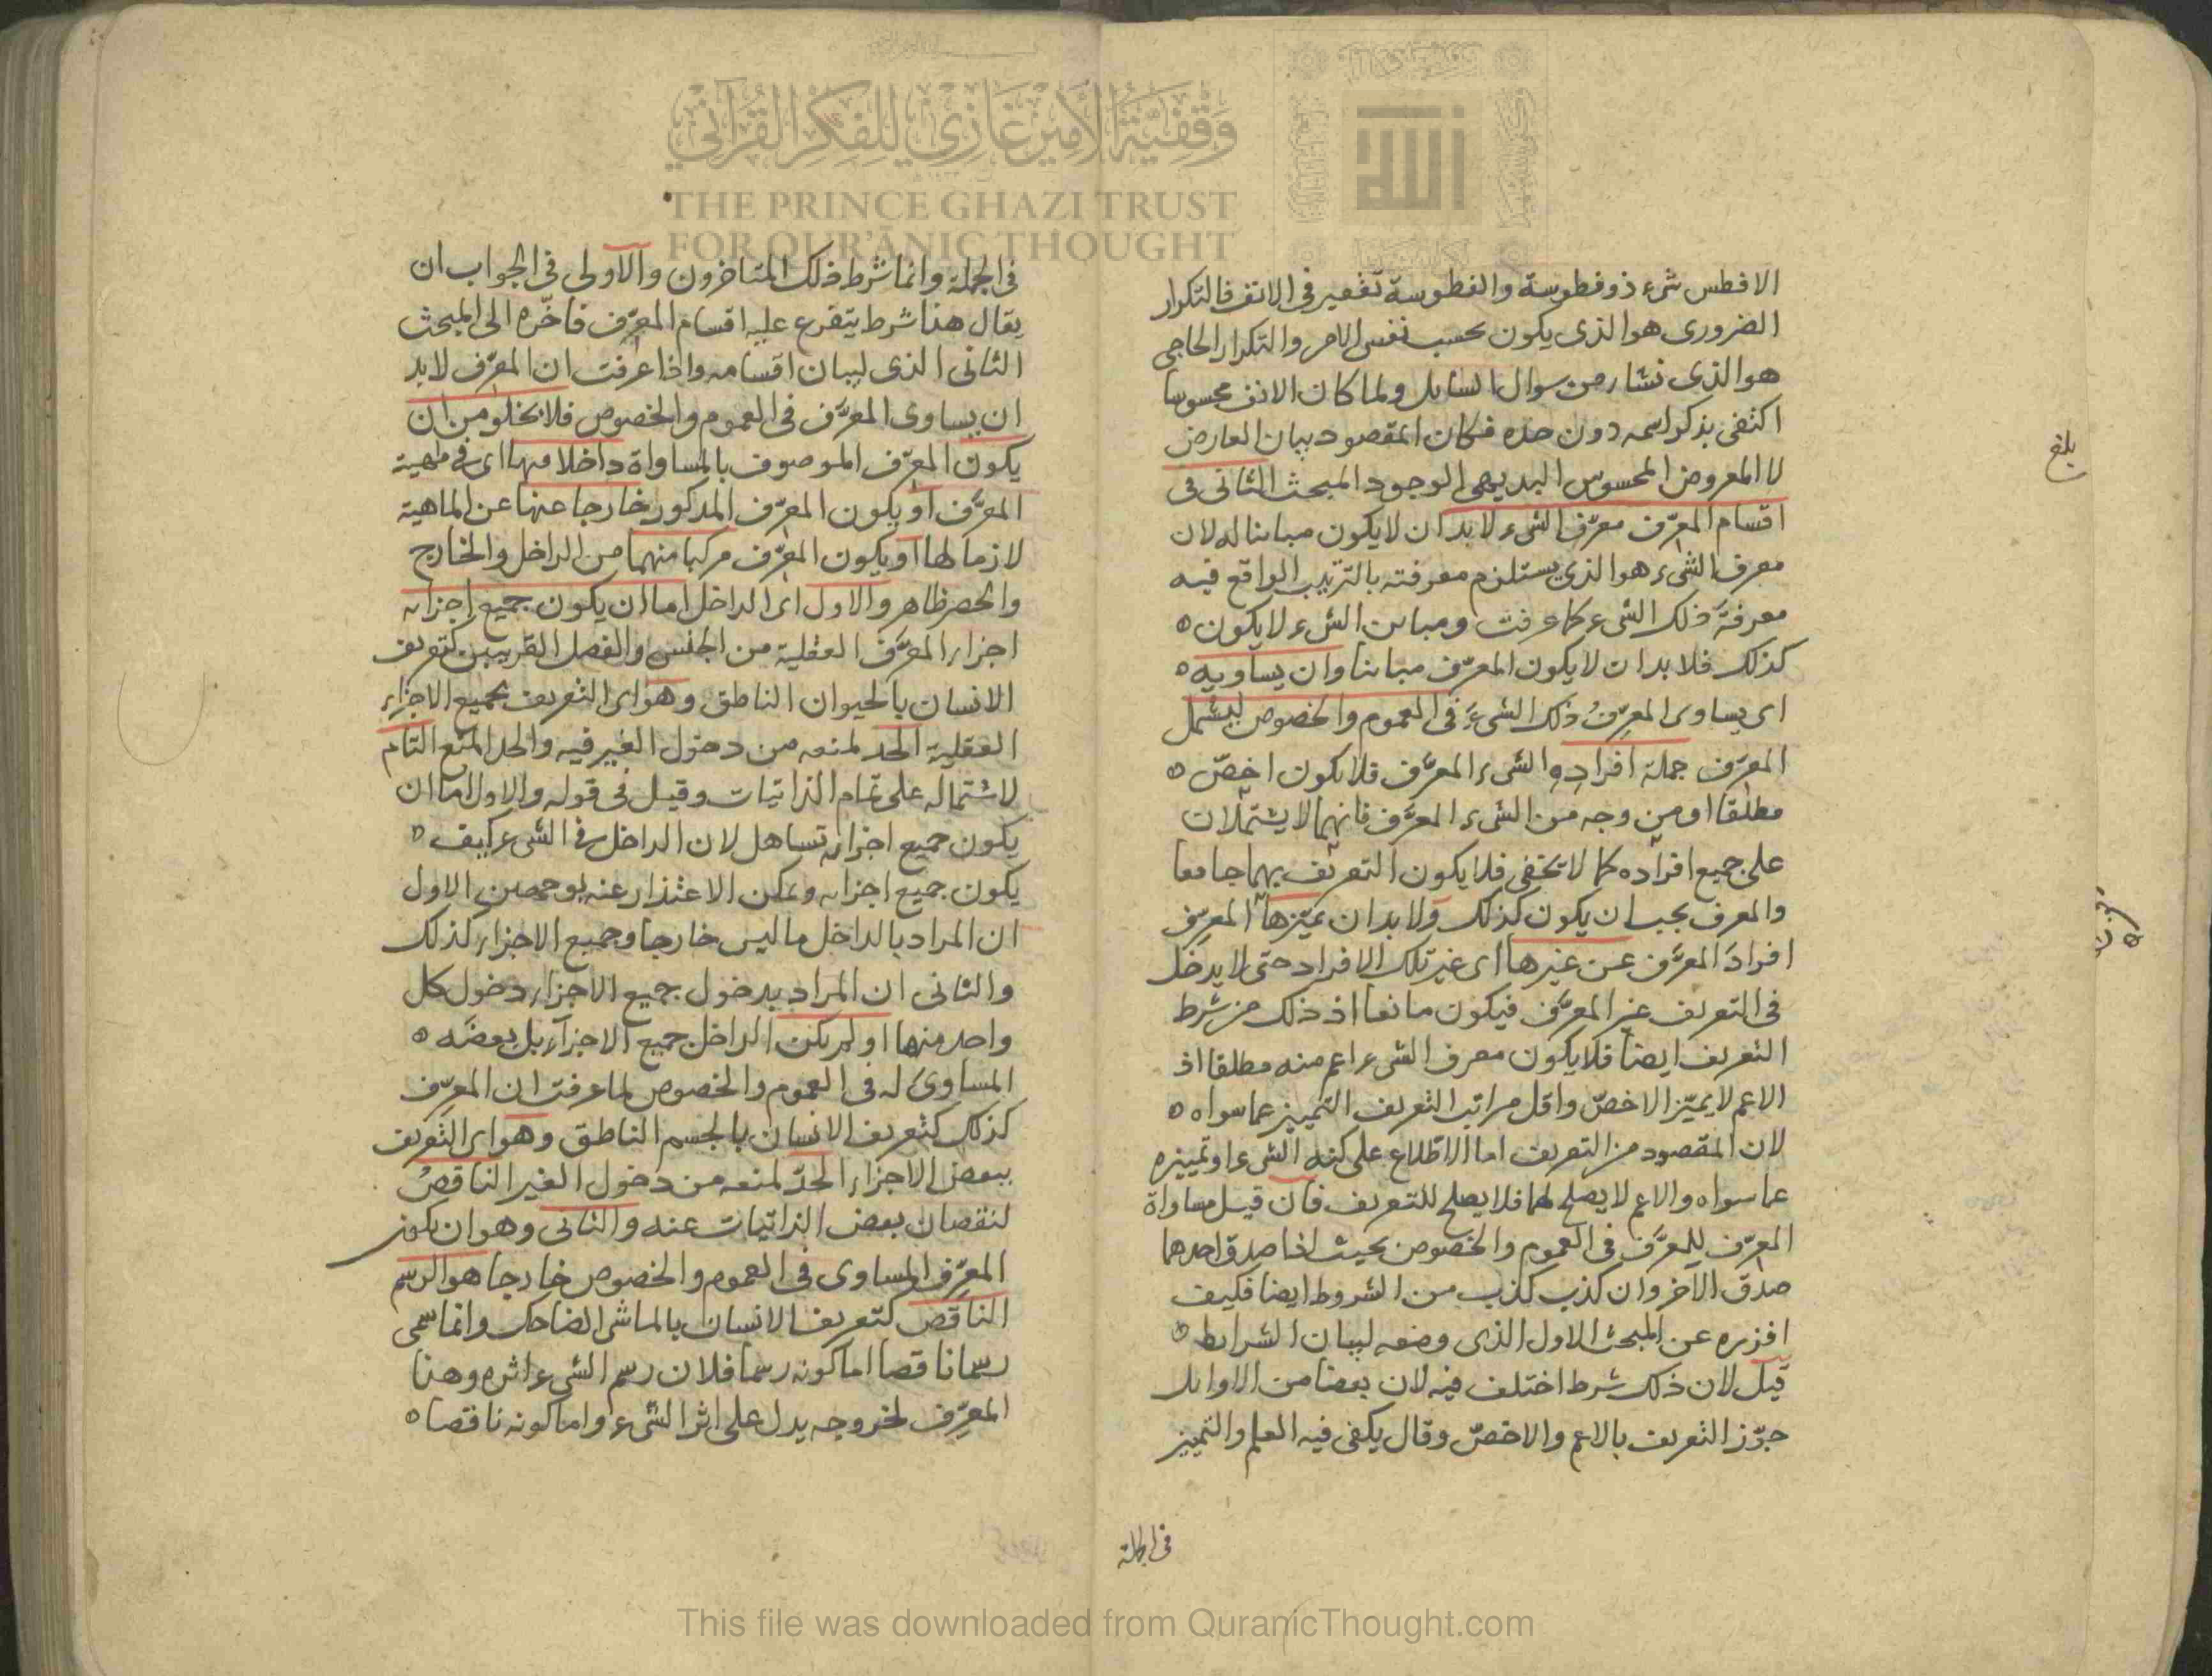 وقفية الأمير غازي للفكر القرآني
THE PRINCE GHAZI TRUST
FOR QUR'ĀNIC THOUGHT
الله
الافطس شىء ذو فطوسة والفطوسة تقعير فى الانف فالتكرار
الضرورى هو الذى يكون بحسب نفس الامر والتكرار الحاجى
هو الذى نشاء من سوال السايل ولما كان الانف محسوسا
اكتفى بذكر اسمه دون حده فكان المقصود بيان العارض
لا المعروض المحسوس البديهى الوجود المبحث الثانى فى
اقسام المعرّف معرّف الشىء لابد ان لا يكون مباينا له لان
معرف الشىء هو الذى يستلزم معرفته بالترتيب الواقع فيه
معرفةَ ذلك الشىء كما عرفت ومباين الشىء لا يكون
كذلك فلا بد ان لا يكون المعرّف مباينا وان يساويه
اى يساوى المعرّفُ ذلك الشىءَ فى العموم والخصوص ليشمل
المعرّف جملة افراد الشىء المعرَّف فلا يكون اخصّ
مطلقا او من وجه من الشىء المعرَّف فانهما لا يشتملان
على جميع افراده كما لا تخفى فلا يكون التعريف بهما جامعا
والمعرف يجب ان يكون كذلك ولا بد ان يميّزها المعرّف
افرادَ المعرَّف عن غيرها اى غير تلك الافراد حتى لا يدخل
فى التعريف غير المعرَّف فيكون مانعا اذ ذلك من شرط
التعريف ايضا فلا يكون معرف الشىء اعم منه مطلقا اذ
الاعم لا يميّز الاخصّ واقل مراتب التعريف التمييز عما سواه
لان المقصود من التعريف اما الاطلاع على كنه الشىء او تمييزه
عما سواه والاعم لا يصلح لهما فلا يصلح للتعريف فان قيل مساواة
المعرّف للمعرَّف فى العموم والخصوص بحيث اذا صدق احدهما
صدق الاخر وان كذب كذب من الشروط ايضا فكيف
افرزه عن المبحث الاول الذى وضعه لبيان الشرايط
قيل لان ذلك شرط اختلف فيه لان بعضا من الاوايل
جوّز التعريف بالاعم والاخصّ وقال يكفى فيه العلم والتمييز
فى الجملة
بلغ
فى الجملة وانما شرط ذلك المتاخرون والاولى فى الجواب ان
يقال هذا شرط يتفرع عليه اقسام المعرّف فاخّره الى المبحث
الثانى الذى لبيان اقسامه واذا عرفت ان المعرّف لابد
ان يساوى المعرَّف فى العموم والخصوص فلا يخلو من ان
يكون المعرّف الموصوف بالمساواة داخلا فيها اى فى مهية
المعرَّف او يكون المعرّف المذكور خارجا عنها عن الماهية
لازما لها او يكون المعرّف مركبا منهما من الداخل والخارج
والحصر ظاهر والاول اى الداخل اما ان يكون جميع اجزايه
اجزاء المعرَّف العقلية من الجنس والفصل القريبين كتعريف
الانسان بالحيوان الناطق وهو اى التعريف بجميع الاجزاء
العقلية الحد لمنعه من دخول الغير فيه والحد المنع التام
لاشتماله على تمام الذاتيات وقيل فى قوله والاول اما ان
يكون جميع اجزايه تساهل لان الداخل فى الشىء كيف
يكون جميع اجزايه ويمكن الاعتذار عنه بوجهين الاول
ان المراد بالداخل ما ليس خارجا وجميع الاجزاء كذلك
والثانى ان المراد بدخول جميع الاجزاء دخول كل
واحد منها او لم يكن الداخل جميع الاجزاء بل بعضه
المساوى له فى العموم والخصوص لما عرفت ان المعرّف
كذلك كتعريف الانسان بالجسم الناطق وهو اى التعريف
ببعض الاجزاء الحدّ لمنعه من دخول الغير الناقصُ
لنقصان بعض الذاتيات عنه والثانى وهو ان يكون
المعرّف المساوى فى العموم والخصوص خارجا هو الرسم
الناقص كتعريف الانسان بالماشى الضاحك وانما سمى
رسما ناقصا اما كونه رسما فلان رسم الشىء اثره وهذا
المعرّف لخروجه يدل على اثر الشىء واما كونه ناقصا
This file was downloaded from QuranicThought.com